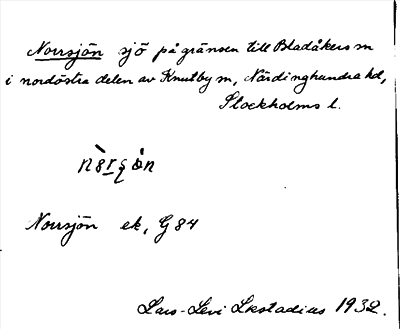 Norrsjön sjö på gränsen till Bladåkers m
i nordöstra delen av Knutby m, Närdinghundra hd,
Stockholms l.
Norrsjön ek, G 84
Lars-Levi Læstadius 1932.